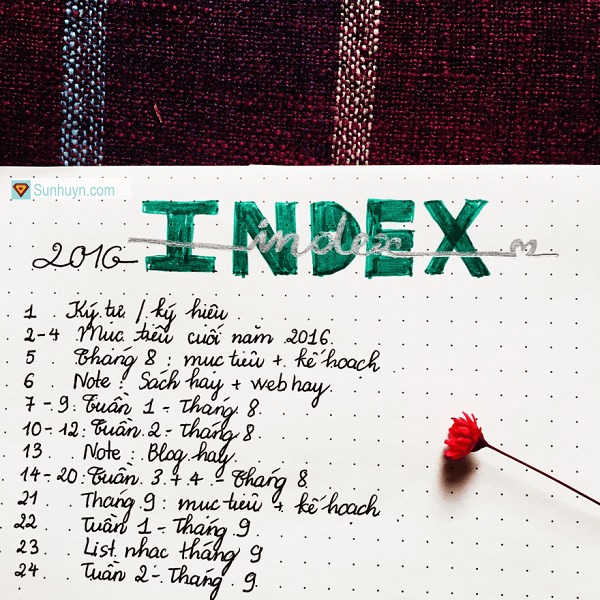 Sunhuyn.com
INDEX
index
2016
1 Ký tự / ký hiệu
2-4 Mục tiêu cuối năm 2016.
5 Tháng 8 : mục tiêu + kế hoạch
6 Note : Sách hay + web hay.
7 - 9 : Tuần 1 - Tháng 8.
10 - 12 : Tuần 2 - Tháng 8.
13 Note : Blog hay.
14 - 20 : Tuần 3 + 4 - Tháng 8
21 Tháng 9 : mục tiêu + kế hoạch
22 Tuần 1 - Tháng 9
23 List nhạc tháng 9
24 Tuần 2 - Tháng 9